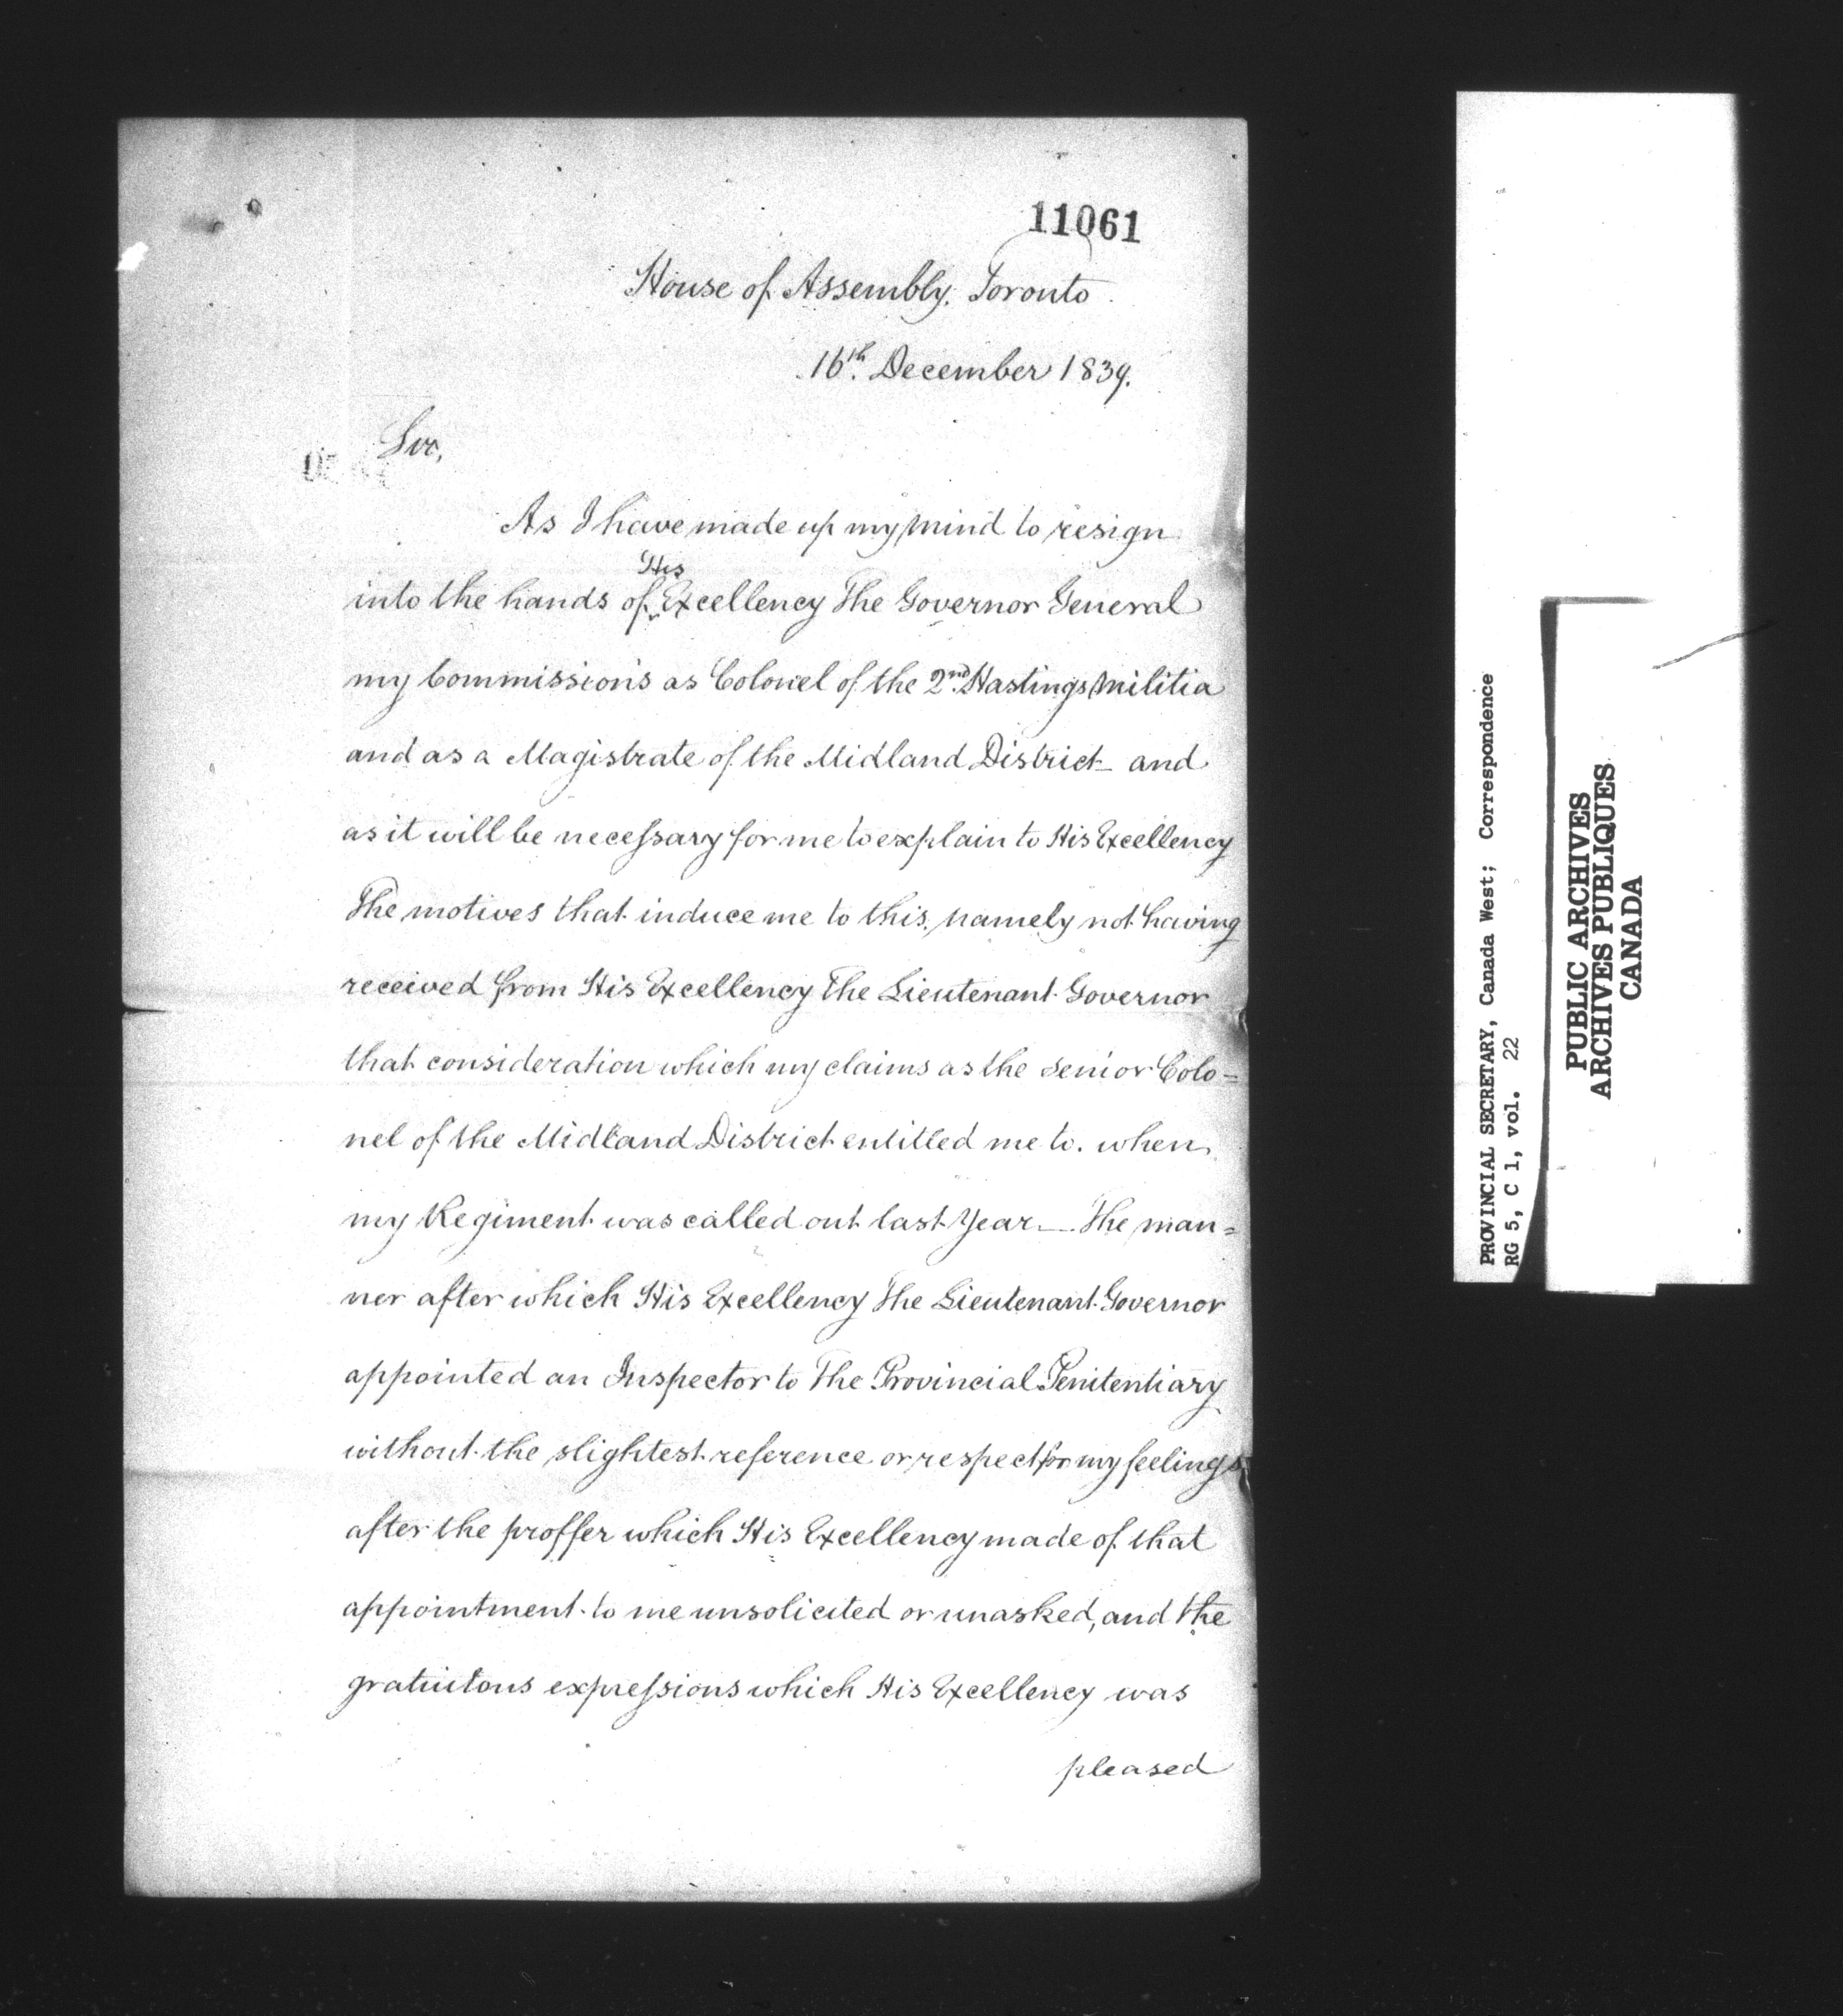 11061
House of Assembly, Toronto
16th December 1839.
Sir,
As I have made up my mind to resign
into the hands of His Excellency The Governor General
my Commissions as Colonel of the 2nd Hastings Militia
and as a Magistrate of the Midland District and
as it will be necessary for me to explain to His Excellency
The motives that induce me to this, namely not having
received from His Excellency The Lieutenant Governor
that consideration which my claims as the senior Colo=
nel of the Midland District entitled me to. when
my Regiment was called out last Year — The man=
ner after which His Excellency The Lieutenant Governor
appointed an Inspector to The Provincial Penitentiary
without the slightest reference or respect for my feelings
after the proffer which His Excellency made of that
appointment to me unsolicited or unasked, and the
gratuitous expressions which His Excellency was
pleased
PROVINCIAL SECRETARY, Canada West; Correspondence
RG 5, C 1, vol. 22
PUBLIC ARCHIVES
ARCHIVES PUBLIQUES
CANADA